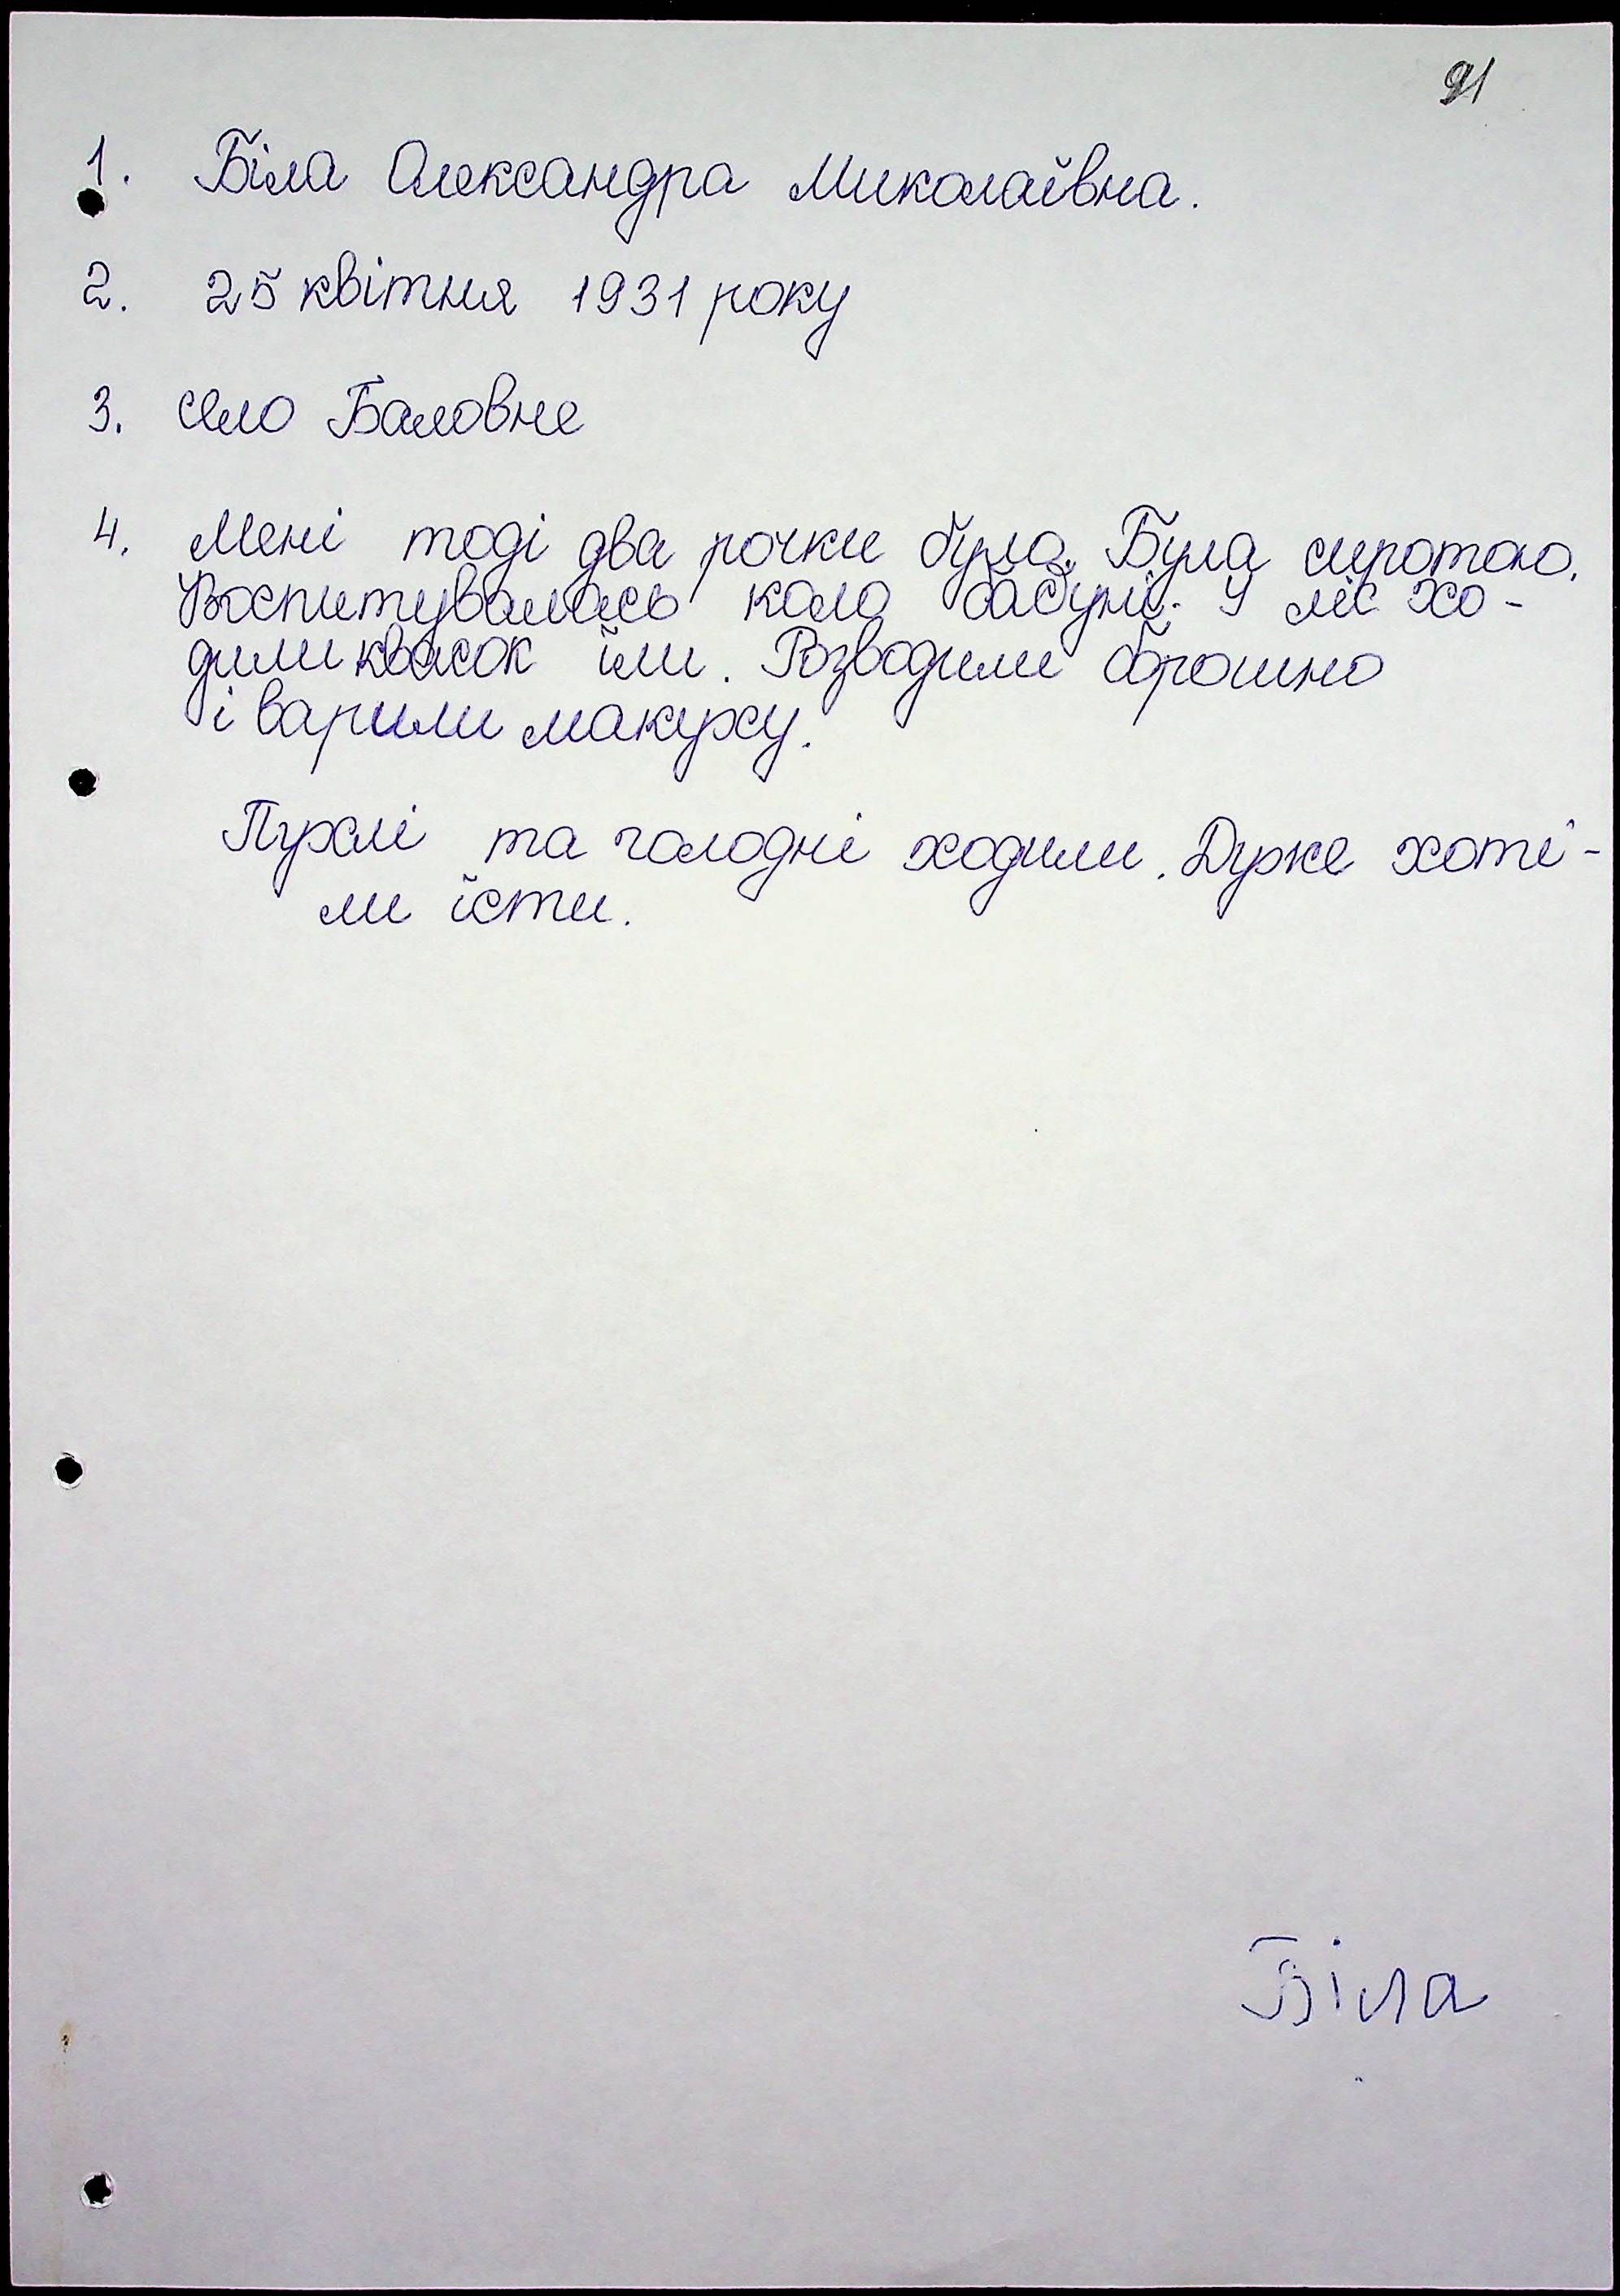 91
1. Біла Олександра Миколаївна.
2. 25 квітня 1931 року
3. село Баловне
4. Мені тоді два рочки було. Була сиротою.
Воспитувалась коло бабуні. У ліс хо-
дили квасок їли. Розводили борошно
і варили макуху.
Пухлі та голодні ходили. Дуже хоті-
ли їсти.
Біла